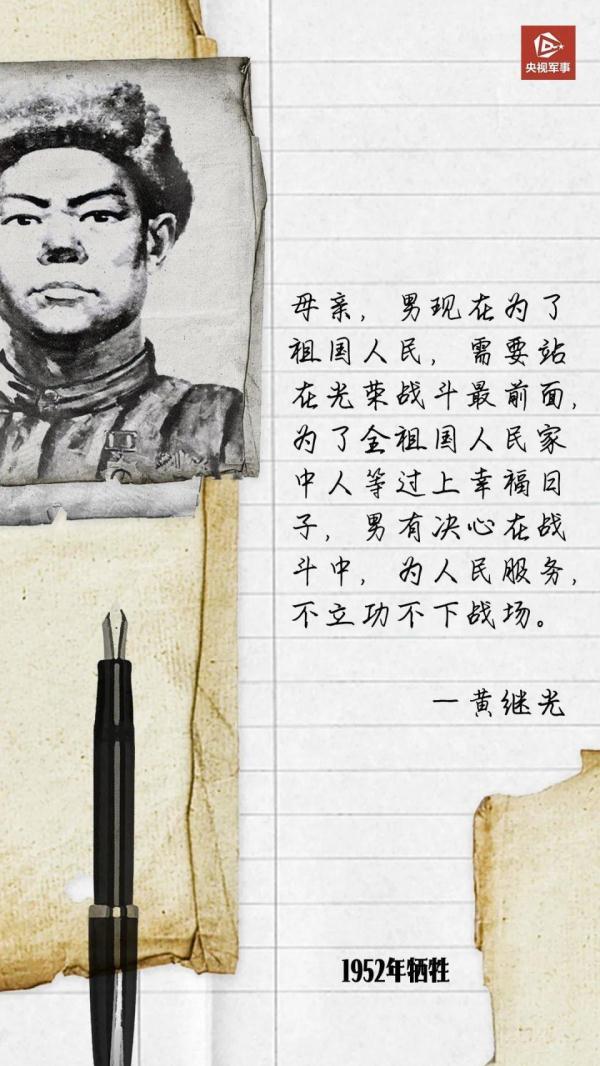 央视军事
母亲，男现在为了
祖国人民，需要站
在光荣战斗最前面，
为了全祖国人民家
中人等过上幸福日
子，男有决心在战
斗中，为人民服务，
不立功不下战场。
一黄继光
1952年牺牲